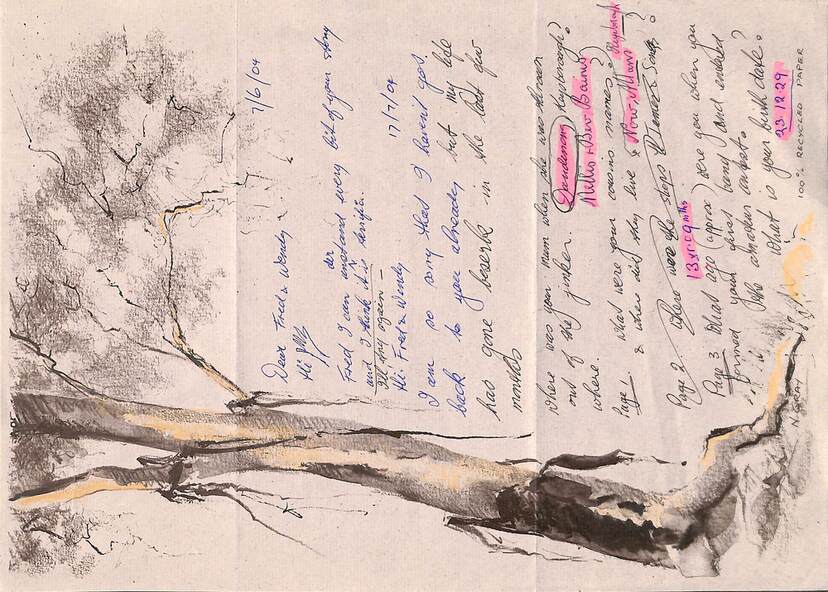 7/6/04
Dear Fred & Wendy
Hi
Fred I can understand every bit of your story
and I think it's terrific.
I'll try again –
17/7/04
Hi. Fred & Wendy
I am so sorry that I haven't got
back to you already but my life
has gone beserk in the last few
months
Where was your mum when she was thrown
out of the jinker. Dandenong Keysborough?
where. Nellie & Bev Bainbs
Page 1 What were your cousins names?
& where did they live & Now, Allans Keysborough
Page 2. Where were the steps
13 yrs. 09 mths
Page 3 What age (approx) were you when you
formed your first band and entered
the amateur contest?
What is your birth date?
23.12.29
100% RECYCLED PAPER
N GRAY